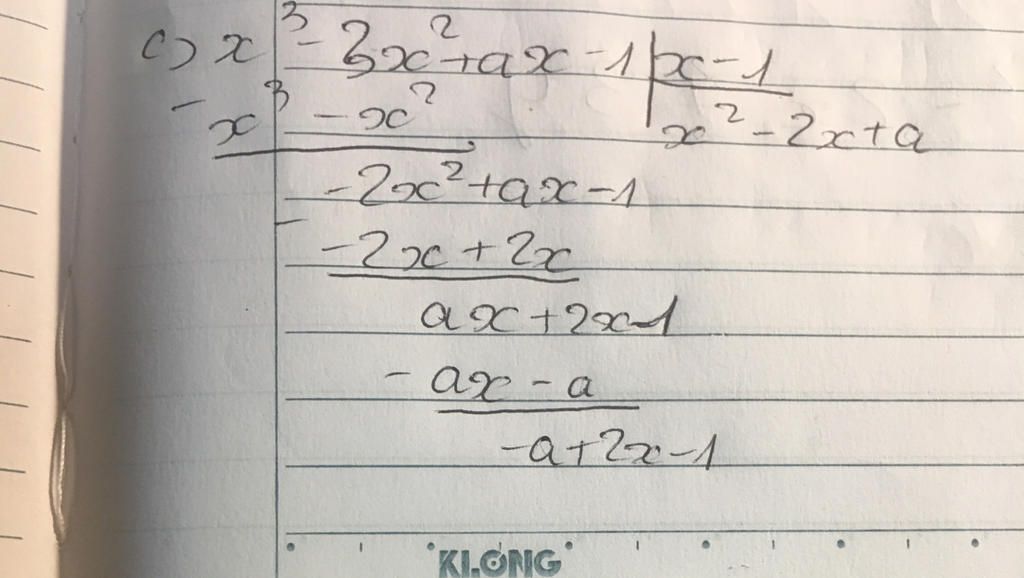 c) x³ - 3x² + ax - 1 | x - 1
- x³ - x² x² - 2x + a
- 2x² + ax - 1
- - 2x + 2x
ax + 2x - 1
- ax - a
- a + 2x - 1
KLONG